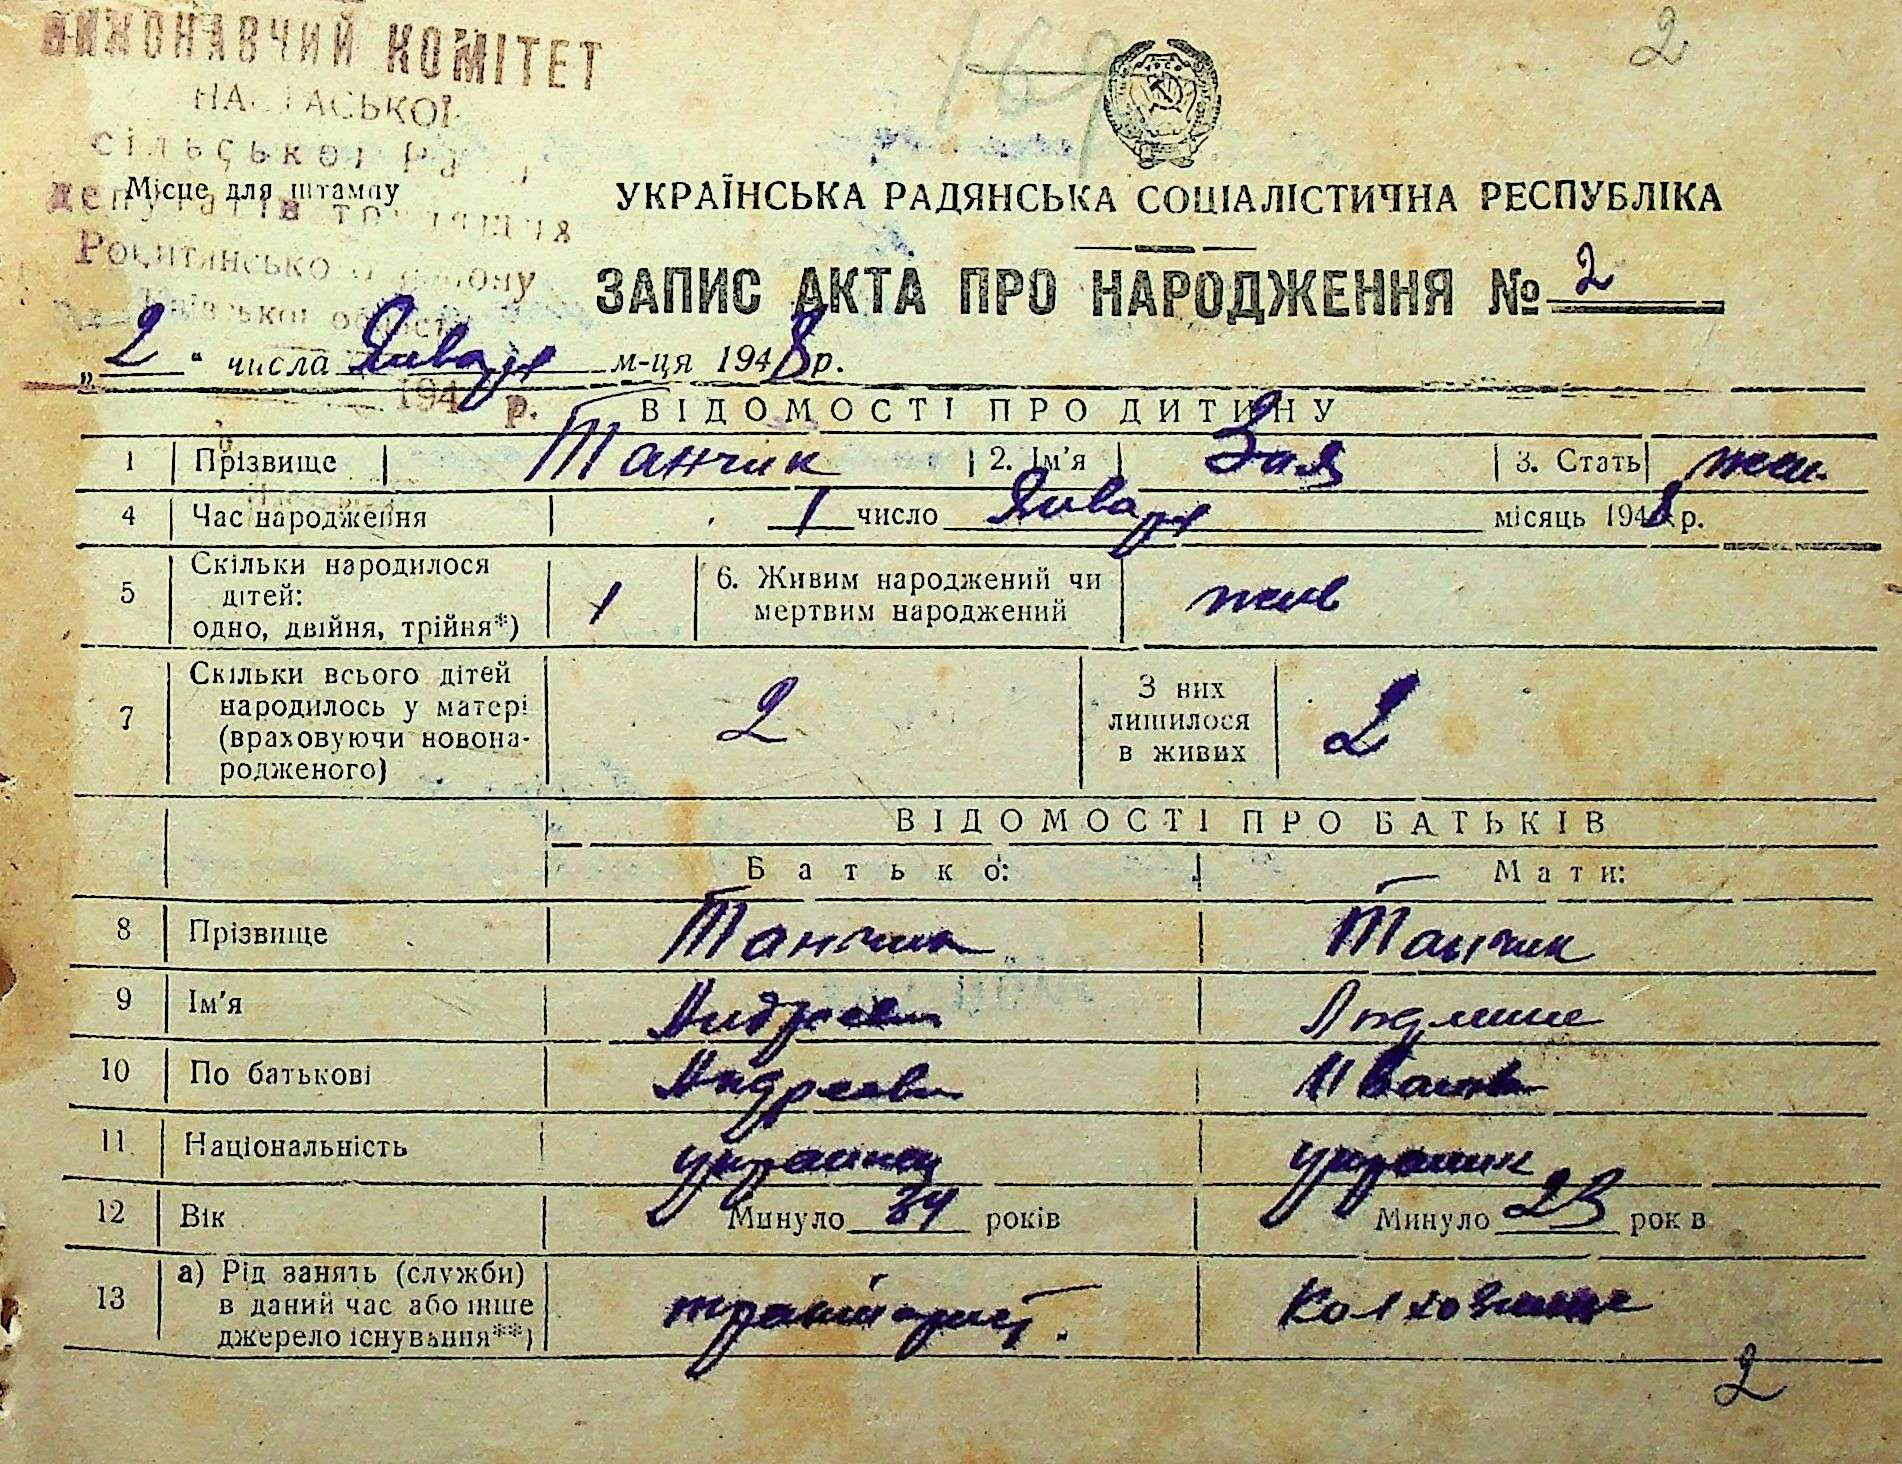 ВИКОНАВЧИЙ КОМІТЕТ
сільської
депутатів
Місце для штампу
169
2
УКРАЇНСЬКА РАДЯНСЬКА СОЦІАЛІСТИЧНА РЕСПУБЛІКА
ЗАПИС АКТА ПРО НАРОДЖЕННЯ № 2
„2“ числа Январ м-ця 1948 р.
194 р.
ВІДОМОСТІ ПРО ДИТИНУ
1 Прізвище Танчик 2. Ім'я Зоя 3. Стать жен.
4 Час народження 1 число Январ місяць 1948 р.
5 Скільки народилося дітей: одно, двійня, трійня*) 1 6. Живим народжений чи мертвим народжений жив
7 Скільки всього дітей народилось у матері (враховуючи новонародженого) 2 З них лишилося в живих 2
ВІДОМОСТІ ПРО БАТЬКІВ
Батько: Мати:
8 Прізвище Танчик Танчик
9 Ім'я Андрей
10 По батькові Андреев Иванов
11 Національність украинец украинк
12 Вік Минуло 34 років Минуло 23 років
13 а) Рід занять (служби) в даний час або інше джерело існування**) Колхозница
2